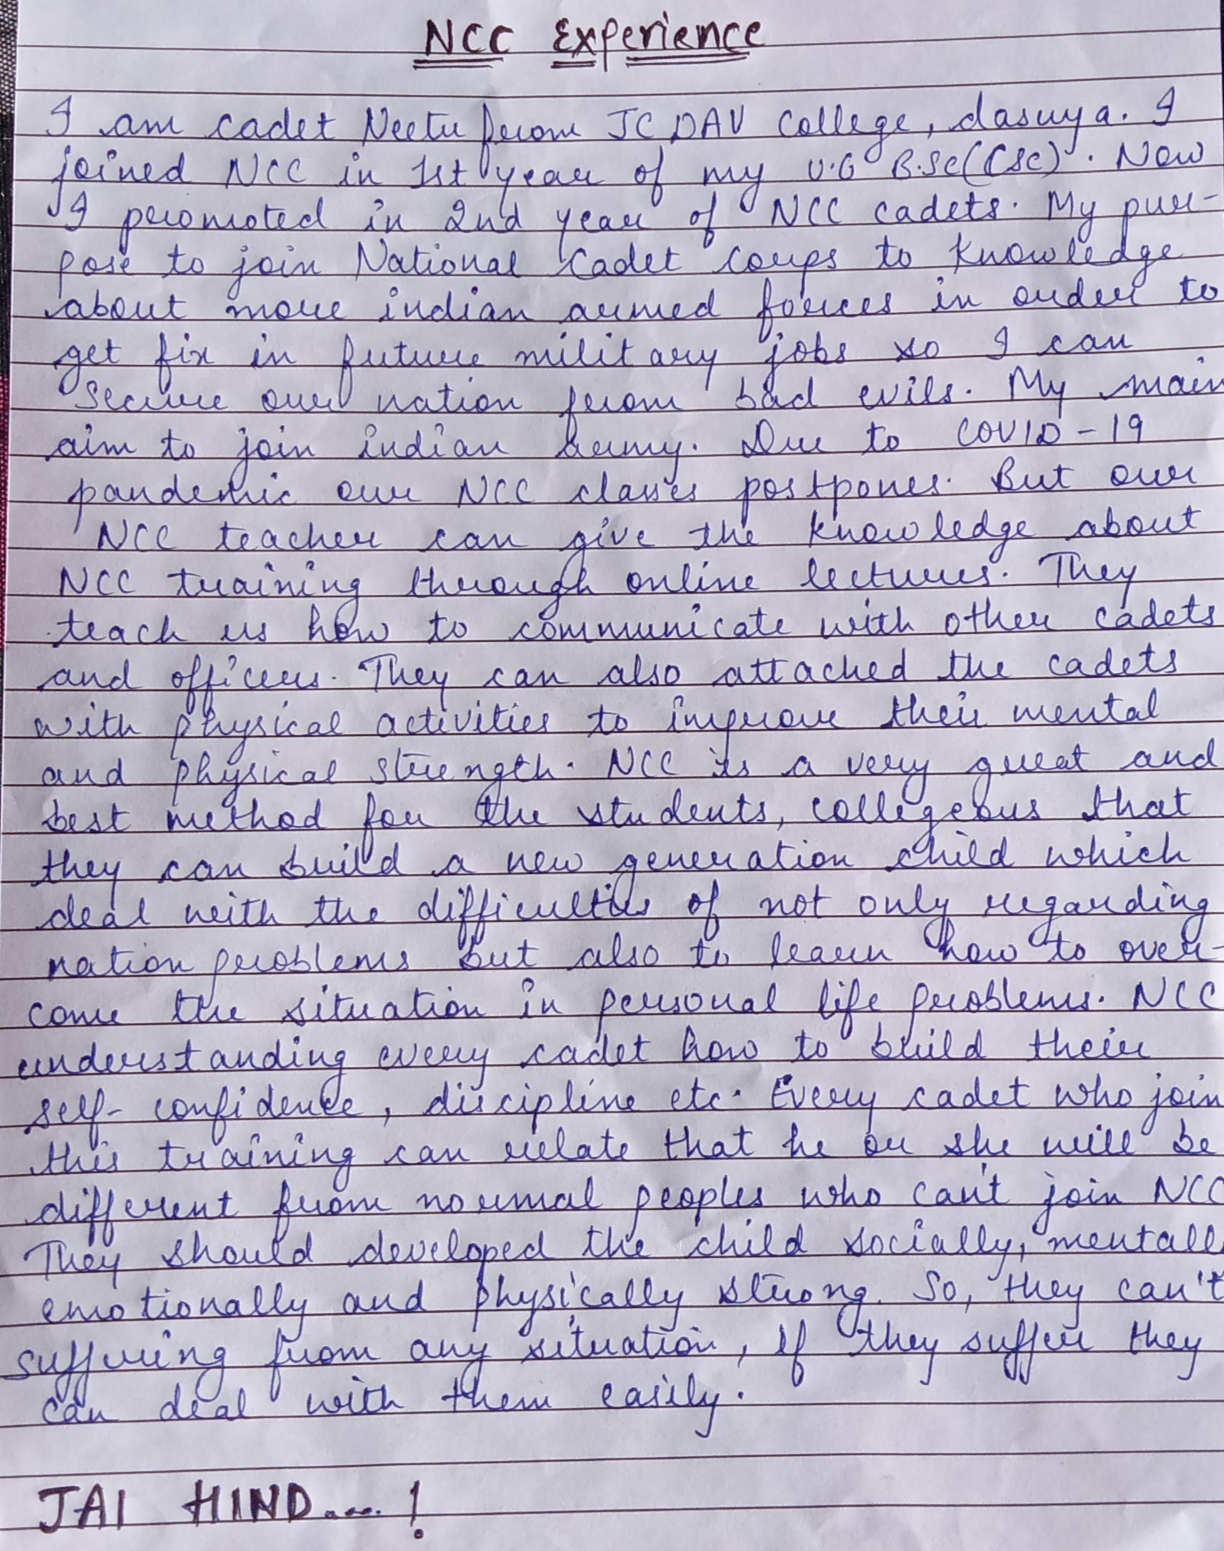 NCC Experience
I am cadet Neetu from JC DAV College, dasuya. I
joined NCC in 1st year of my U.G B.Sc(CSc). Now
I promoted in 2nd year of NCC cadets. My pur-
pose to join National Cadet corps to knowledge
about more indian armed forces in order to
get fix in future military jobs so I can
secure our nation from bad evils. My main
aim to join indian army. Due to COVID-19
pandemic our NCC classes postpones. But our
NCC teacher can give the knowledge about
NCC training through online lectures. They
teach us how to communicate with other cadets
and officers. They can also attached the cadets
with physical activities to improve their mental
and physical strength. NCC is a very great and
best method for the students, collegeous that
they can build a new generation child which
deal with the difficulties of not only regarding
nation problems but also to learn how to over-
come the situation in personal life problems. NCC
understanding every cadet how to build their
self-confidence, discipline etc. Every cadet who join
this training can relate that he or she will be
different from normal peoples who can't join NCC
They should developed the child socially, mentall
emotionally and physically strong. So, they can't
suffering from any situation, if they suffer they
can deal with them easily.
JAI HIND....!